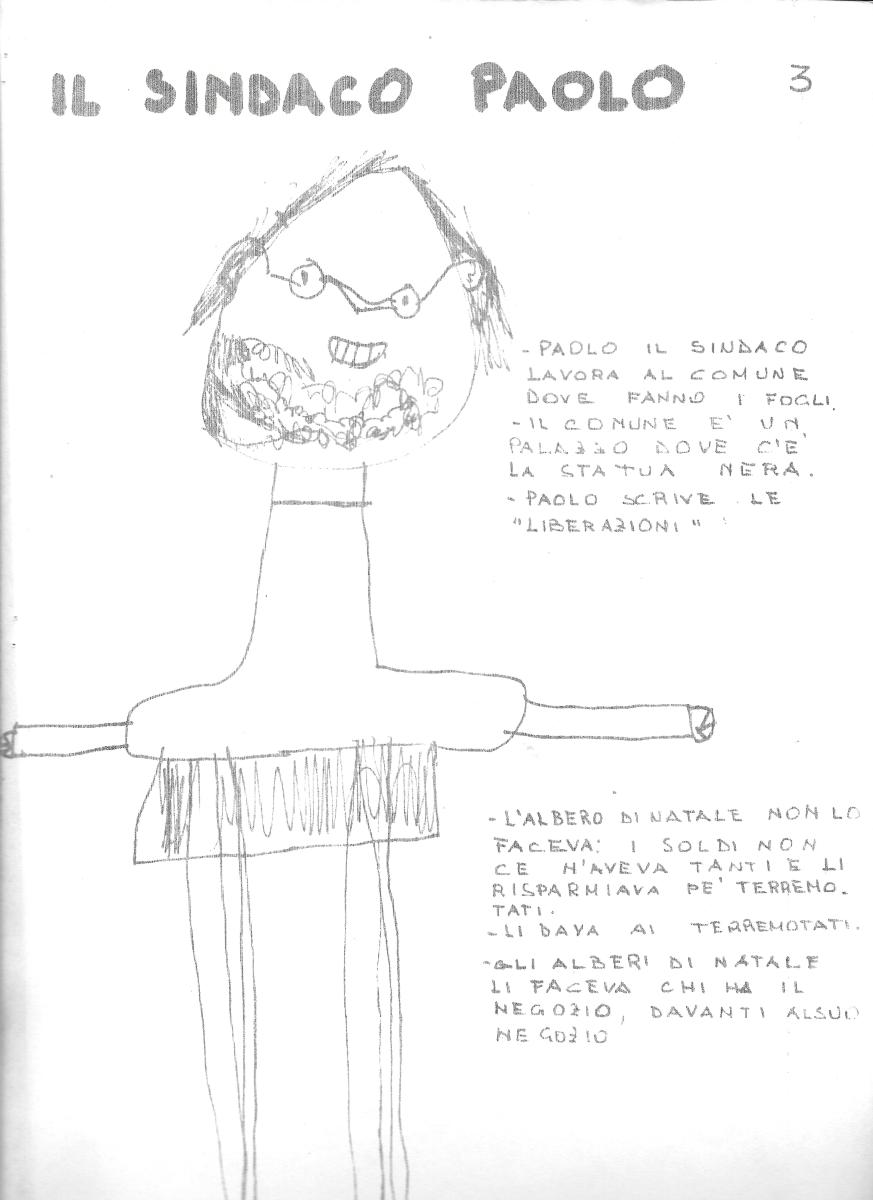 IL SINDACO PAOLO 3
- PAOLO IL SINDACO
LAVORA AL COMUNE
DOVE FANNO I FOGLI.
- IL COMUNE E' UN
PALAZZO DOVE C'E'
LA STATUA NERA.
- PAOLO SCRIVE LE
"LIBERAZIONI"
- L'ALBERO DI NATALE NON LO
FACEVA: I SOLDI NON
CE N'AVEVA TANTI E LI
RISPARMIAVA PE' TERREMO-
TATI.
- LI DAVA AI TERREMOTATI.
- GLI ALBERI DI NATALE
LI FACEVA CHI HA IL
NEGOZIO, DAVANTI AL SUO
NEGOZIO